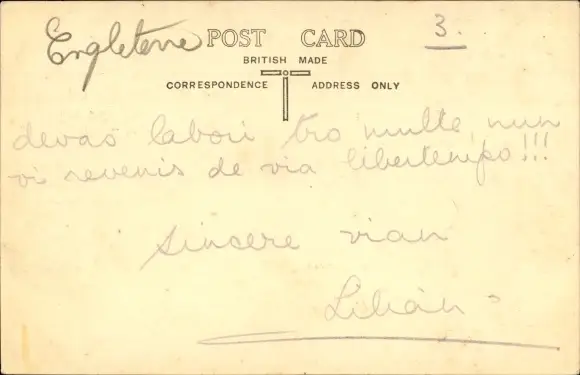 Engleterre POST CARD 3.
BRITISH MADE
CORRESPONDENCE ADDRESS ONLY
devas labori tro multe, nun
vi revenis de via libertempo!!!
sincere vian
Lilian